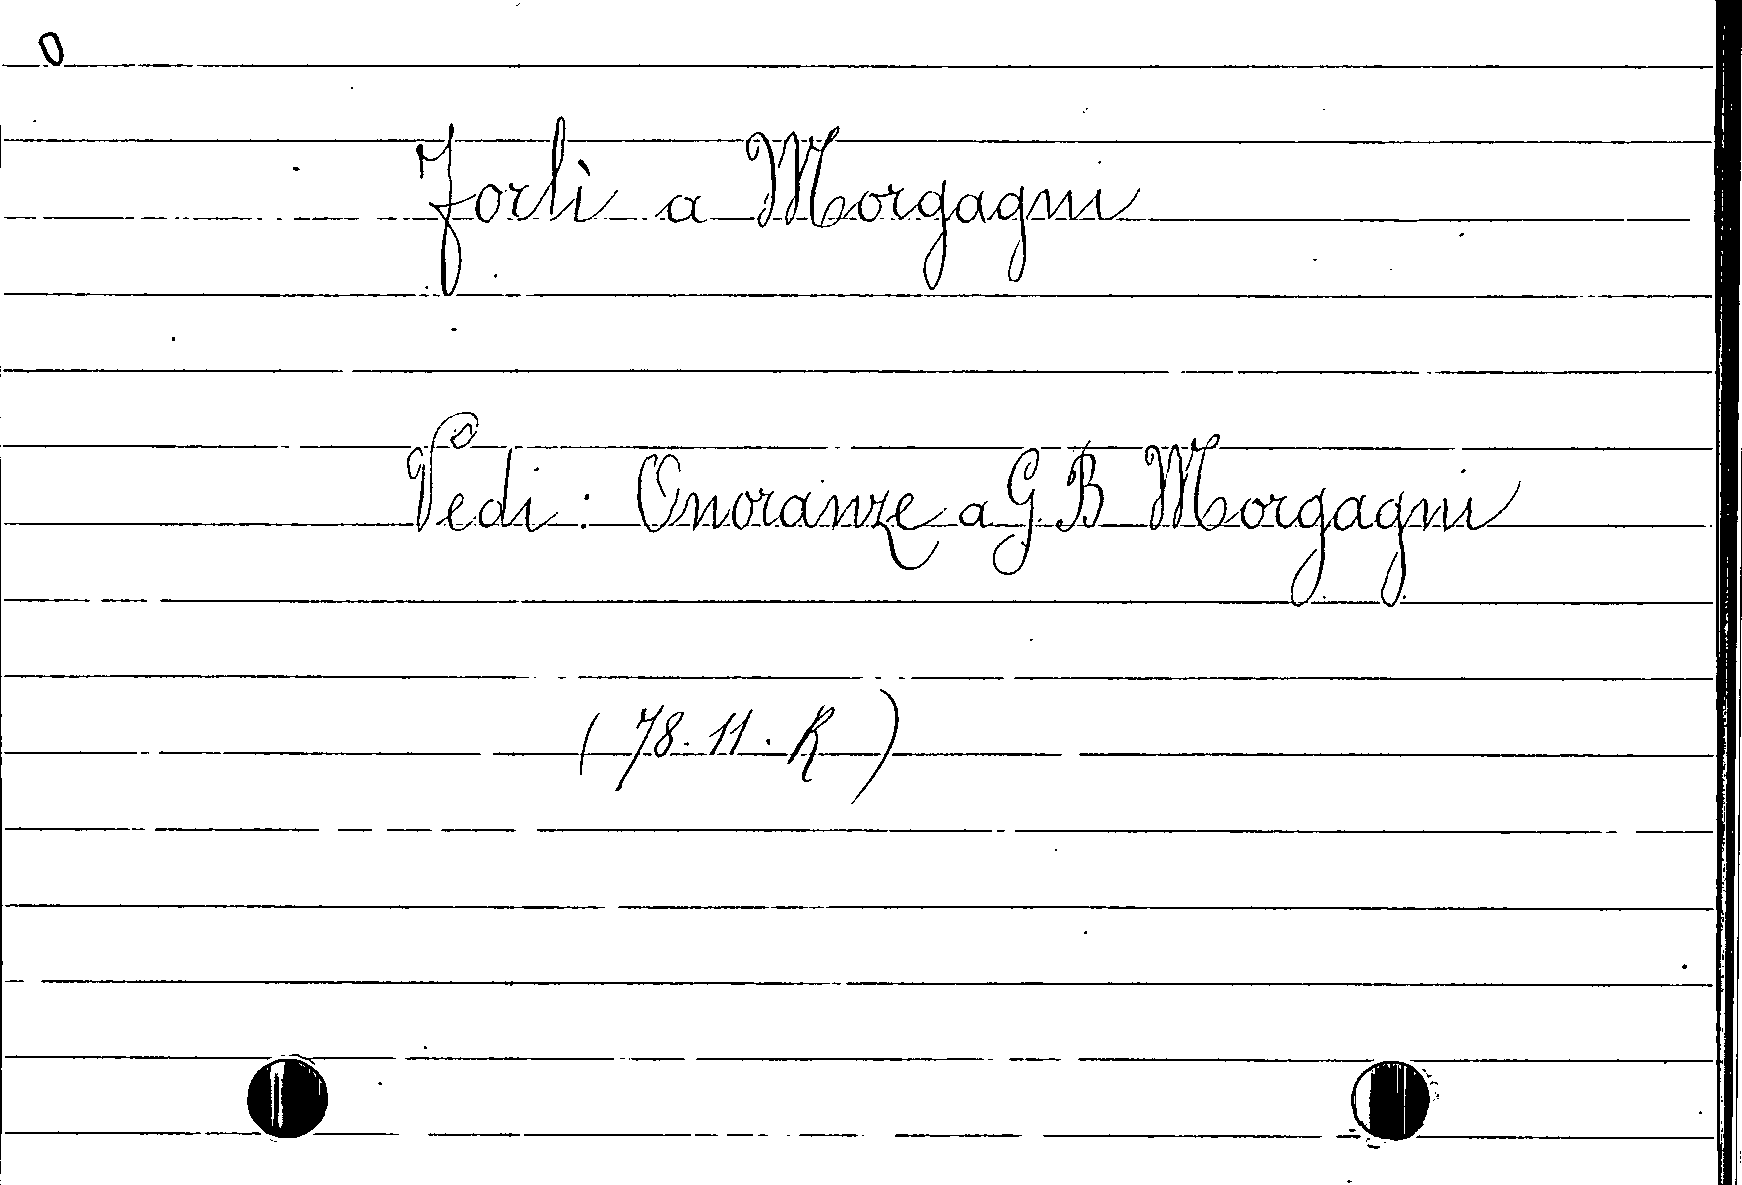 0
Forlì a Morgagni
Vedi: Onoranze a G. B. Morgagni
(78.11.R)